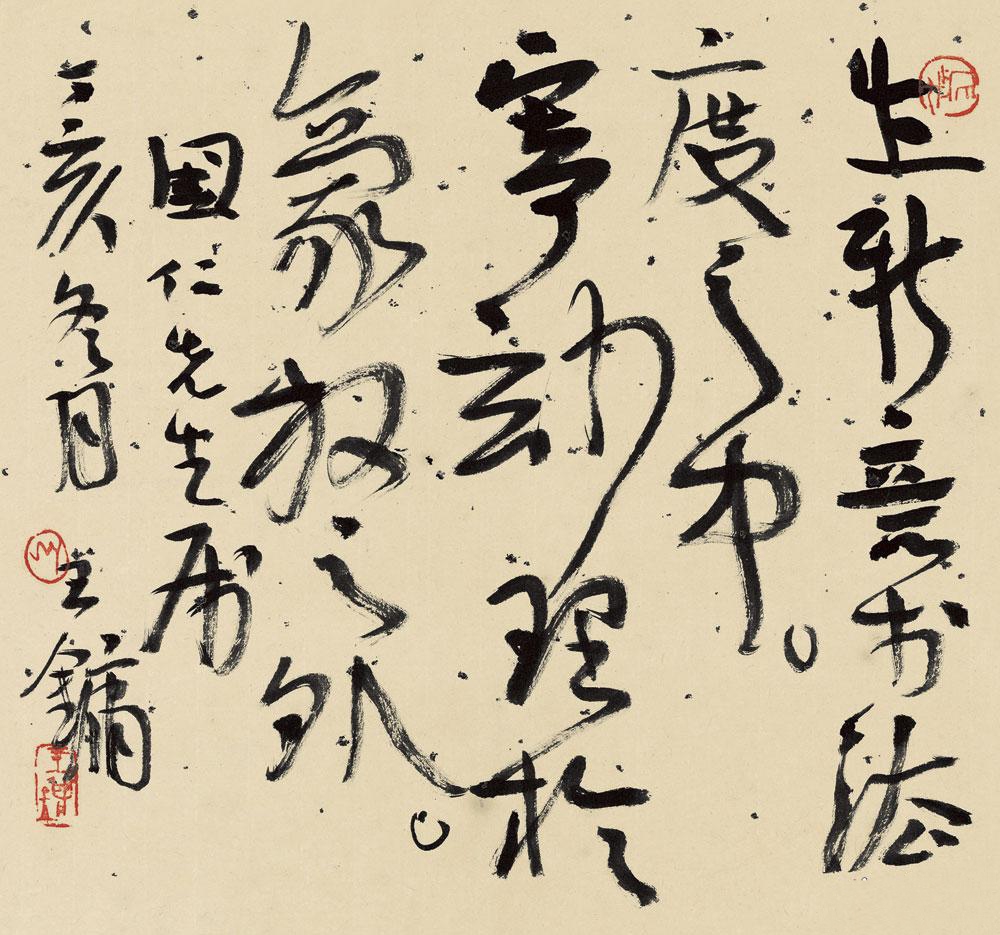 出新意於法
度之中。
寄玅理於
豪放之外。
国仁先生属
丁亥冬月 王鏞